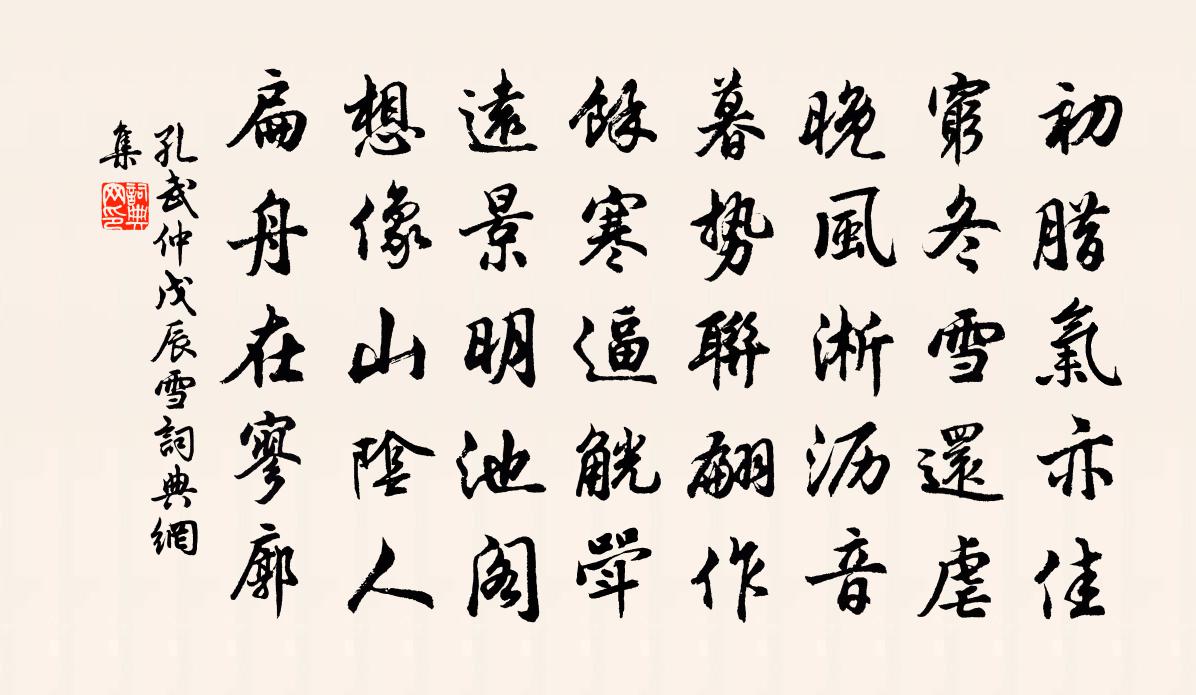 初腊氣亦佳
窮冬雪還虐
晚風淅沥音
暮势聯翩作
餘寒逼觥斝
遠景明池阁
想像山陰人
扁舟在寥廓
孔武仲戊辰雪詞典網
集
詞典
网印